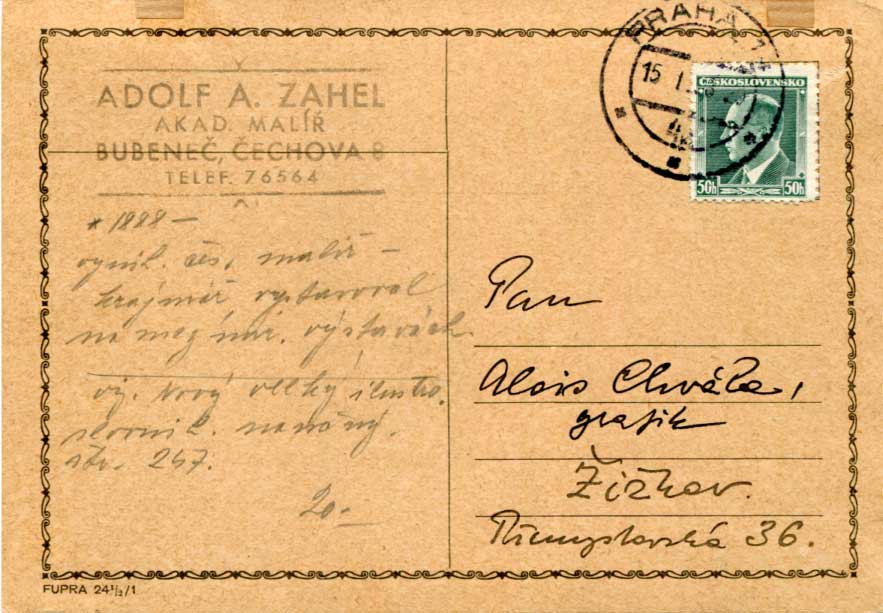 ADOLF A. ZAHEL
AKAD. MALÍŘ
BUBENEČ, ČECHOVA 8
TELEF. 76564
* 1888 –
vynik. čes. malíř –
krajinář vystavoval
na mezinár. výstavách
viz. Nový velký ilustro.
slovník. naučný.
str. 247.
20.-
PRAHA 1
15 I
ČESKOSLOVENSKO
50h 50h
Pan
Alois Chvála,
grafik
Žižkov.
Přemyslovská 36.
FUPRA 24½/1